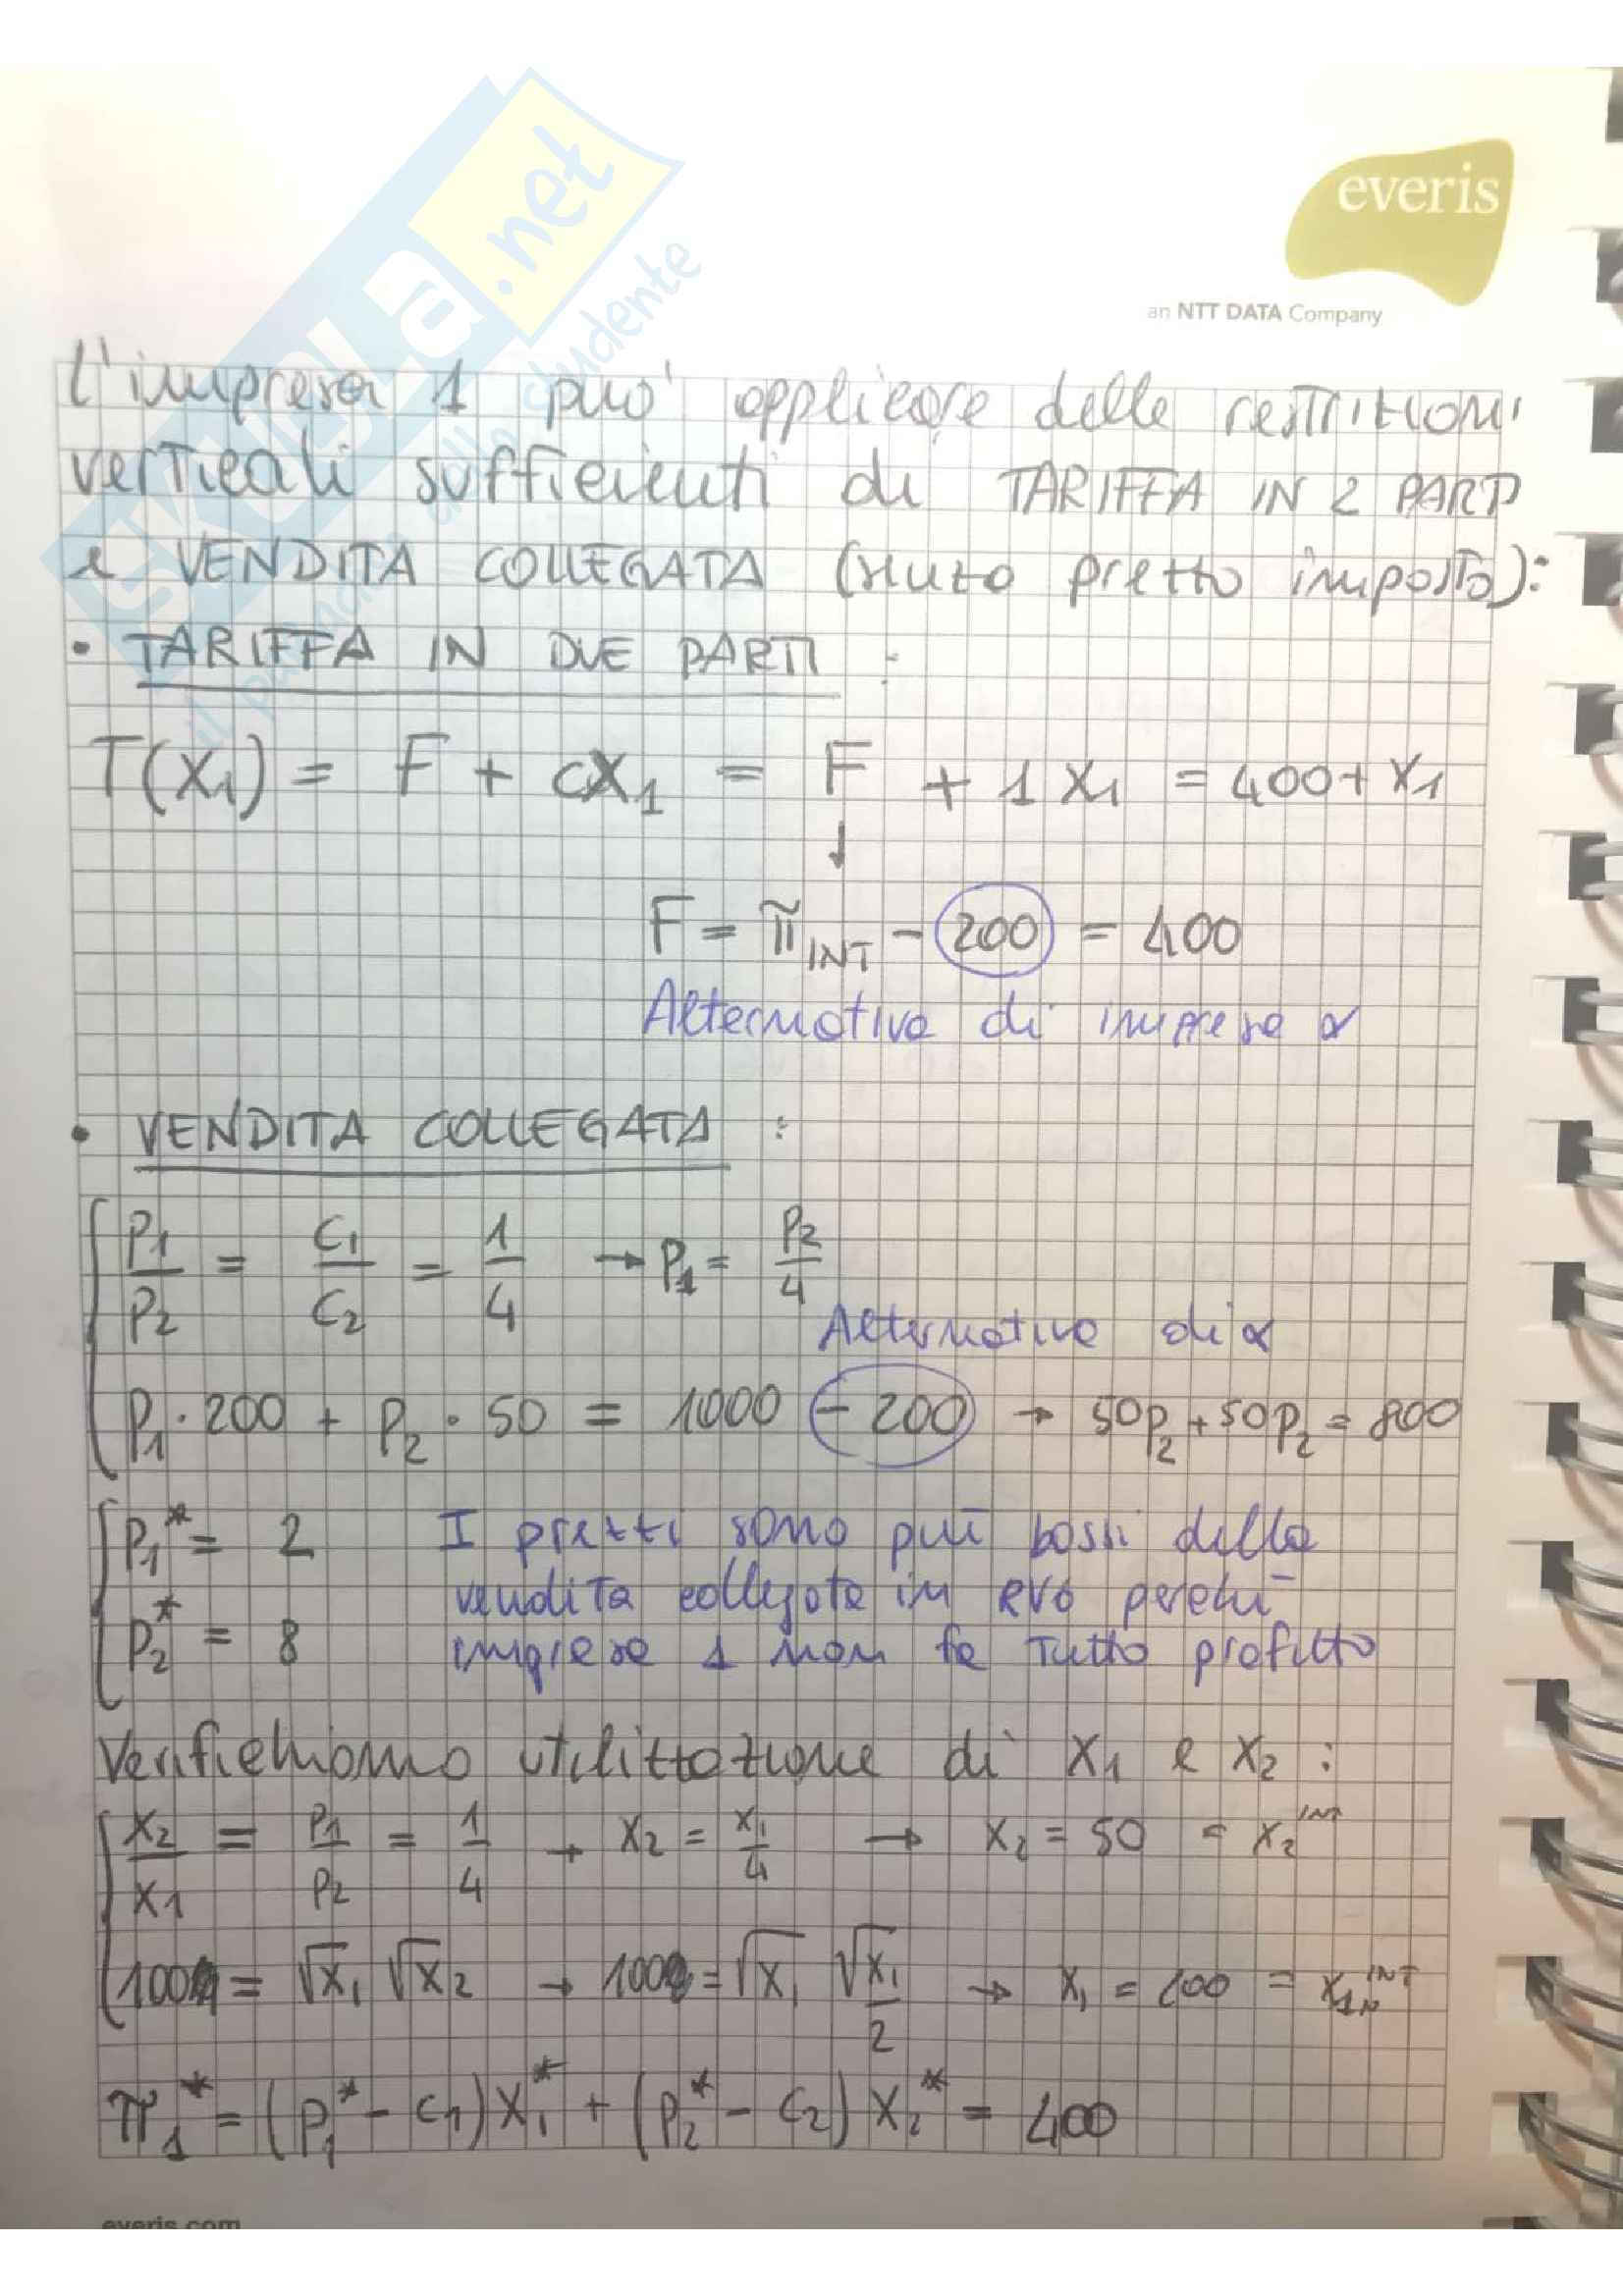 SKUOLA.net
il paradiso dello studente
everis
an NTT DATA Company
L'impresa 1 può applicare delle restrizioni
verticali sufficienti di TARIFFA IN 2 PARTI
e VENDITA COLLEGATA (senza prezzo imposto):
• TARIFFA IN DUE PARTI :
T(X1) = F + cX1 = F + 1 X1 = 400 + X1
↓
F = π̃INT - 200 = 400
Alternativa di impresa α
• VENDITA COLLEGATA :
P1/P2 = C1/C2 = 1/4 → P1 = P2/4
Alternativa di α
P1 · 200 + P2 · 50 = 1000 - 200 → 50P2 + 50P2 = 800
P1* = 2 I prezzi sono più bassi della
vendita collegata in
P2* = 8 impresa 1 non fa tutto profitto
Verifichiamo utilizzazione di X1 e X2 :
X2/X1 = P1/P2 = 1/4 → X2 = X1/4 → X2 = 50 = X2INT
100 = √X1 √X2 → 100 = √X1 √X1/2 → X1 = 200
π1* = (P1* - C1) X1* + (P2* - C2) X2* = 400
everis.com